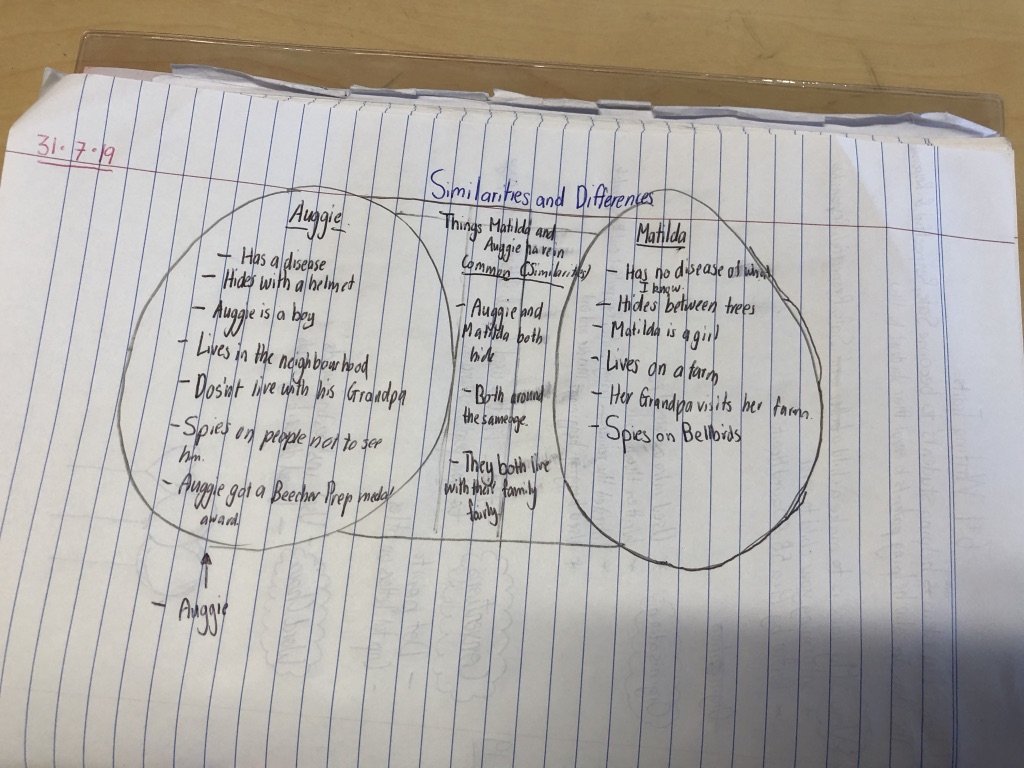 31.7.19
Similarities and Differences
Auggie
- Has a disease
- Hides with a helmet
- Auggie is a boy
- Lives in the neighbourhood
- Dosn't live with his Grandpa
- Spies on people not to see
him.
- Auggie got a Beecher Prep medal
award.
- Auggie
Things Matilda and
Auggie have in
Common (Similarities)
- Auggie and
Matilda both
hide
- Both around
the same age.
- They both live
with their family
Matilda
- Has no disease of what
I know.
- Hides between trees
- Matilda is a girl
- Lives on a farm
- Her Grandpa visits her farm.
- Spies on Bellbirds